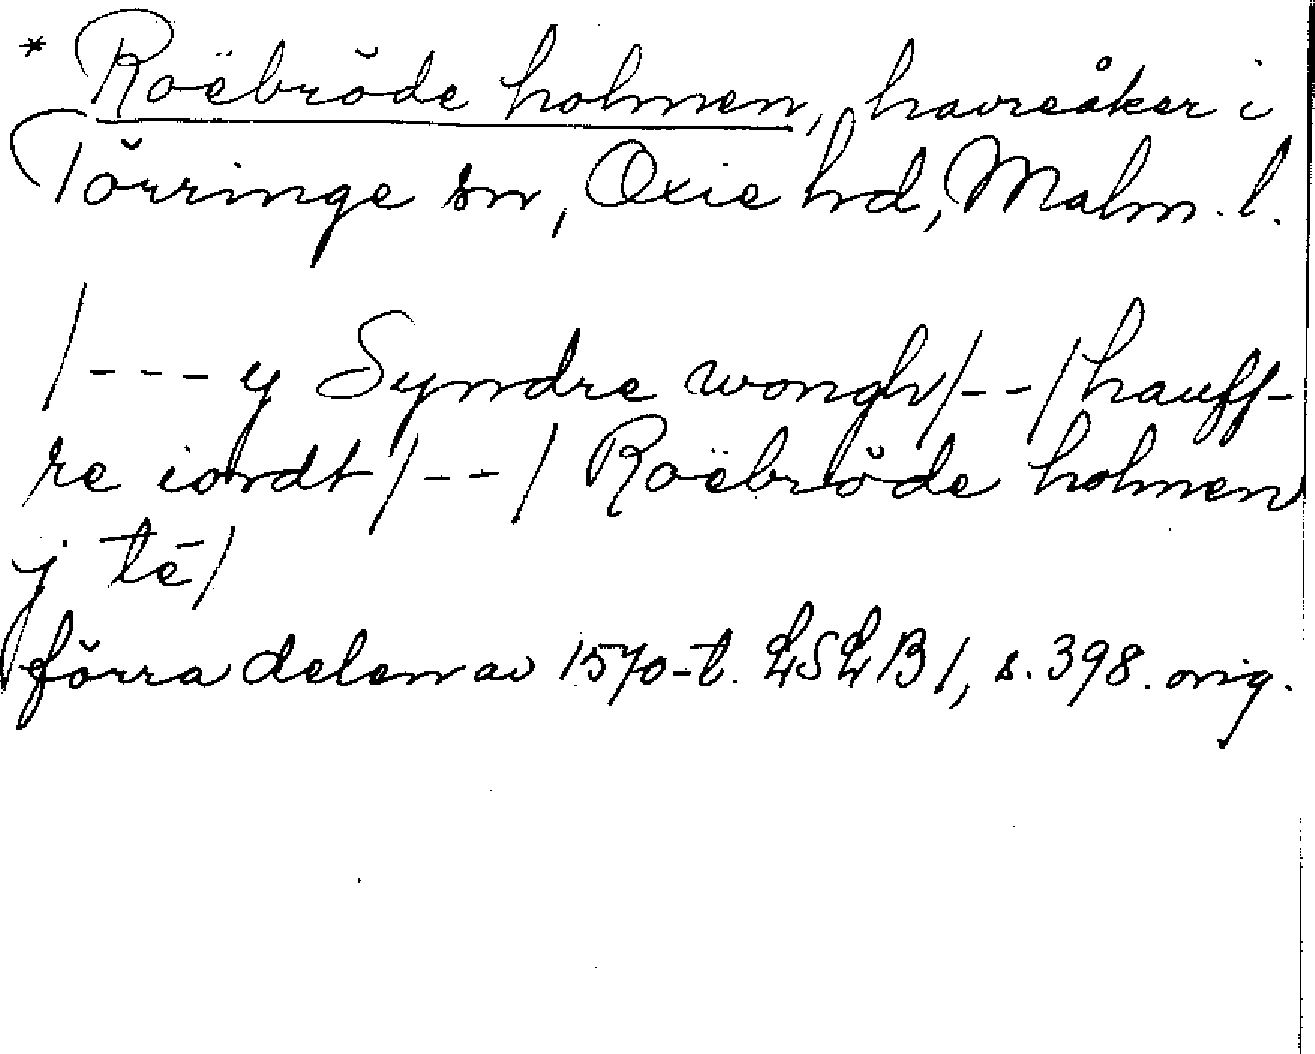 * Roëbröde holmen, havreåker i
Törringe sn, Oxie hd, Malm. l.
/---y Syndre wongh/--/hauff-
re iordt/--/ Roëbröde holmen
j tē/
förra delen av 1570-t. LSLB1, s. 398. orig.